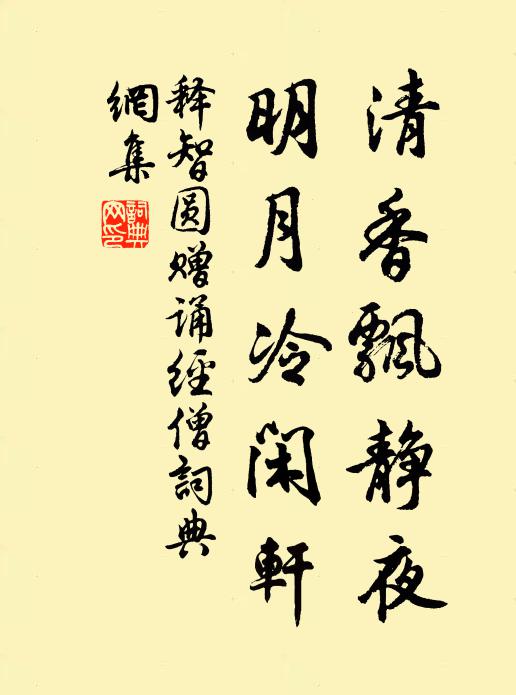 清香飄静夜
明月冷闲軒
释智圆赠诵经僧詞典
網集
詞典
网印